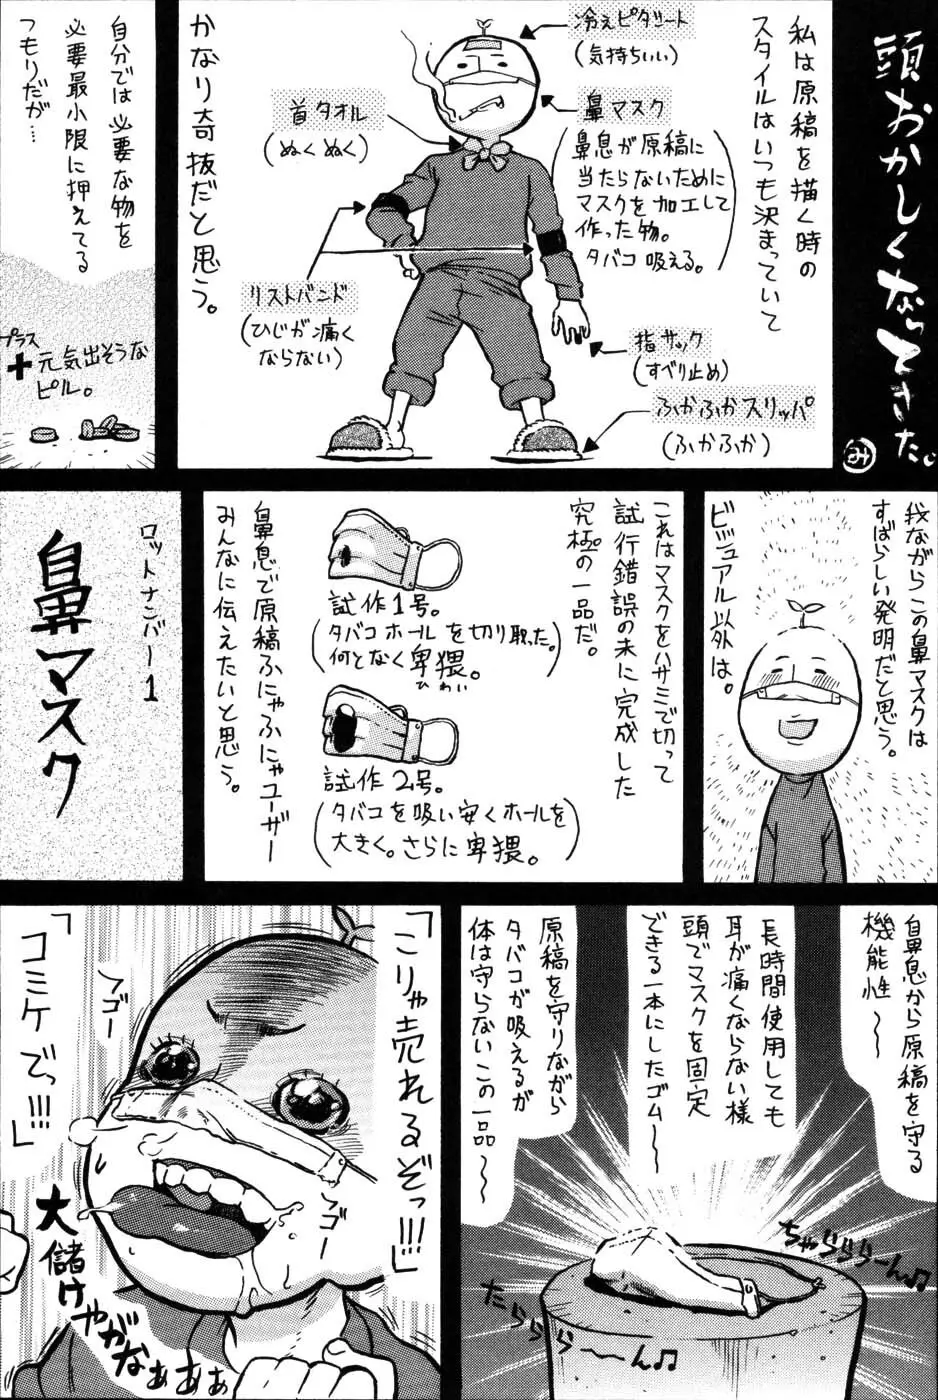 頭おかしくなってきた。
み
私は原稿を描く時の
スタイルはいつも決まっていて
冷えピタシート
(気持ちいい)
鼻マスク
(鼻息が原稿に
当たらないために
マスクを加工して
作った物。
タバコ吸える。)
首タオル
(ぬくぬく)
リストバンド
(ひじが痛く
ならない)
指サック
(すべり止め)
ふかふかスリッパ
(ふかふか)
かなり奇抜だと思う。
自分では必要な物を
必要最小限に押えてる
つもりだが…
プラス
+元気出そうな
ピル。
我ながらこの鼻マスクは
すばらしい発明だと思う。
ビジュアル以外は。
これはマスクをハサミで切って
試行錯誤の末に完成した
究極の一品だ。
試作1号。
(タバコホールを切り取った。
何となく卑猥。)
ひわい
試作2号。
(タバコを吸い安くホールを
大きく。さらに卑猥。)
鼻息で原稿ふにゃふにゃユーザー
みんなに伝えたいと思う。
ロットナンバー1
鼻マスク
鼻息から原稿を守る
機能性〜
長時間使用しても
耳が痛くならない様
頭でマスクを固定
できる一本にしたゴム〜
原稿を守りながら
タバコが吸えるが
体は守らないこの一品〜
ちゃらららーん♫
たららららーん♫
「こりゃ売れるぞっ!!!」
「コミケでっ!!!」
フゴー
フゴー
大儲けやがなぁぁぁ